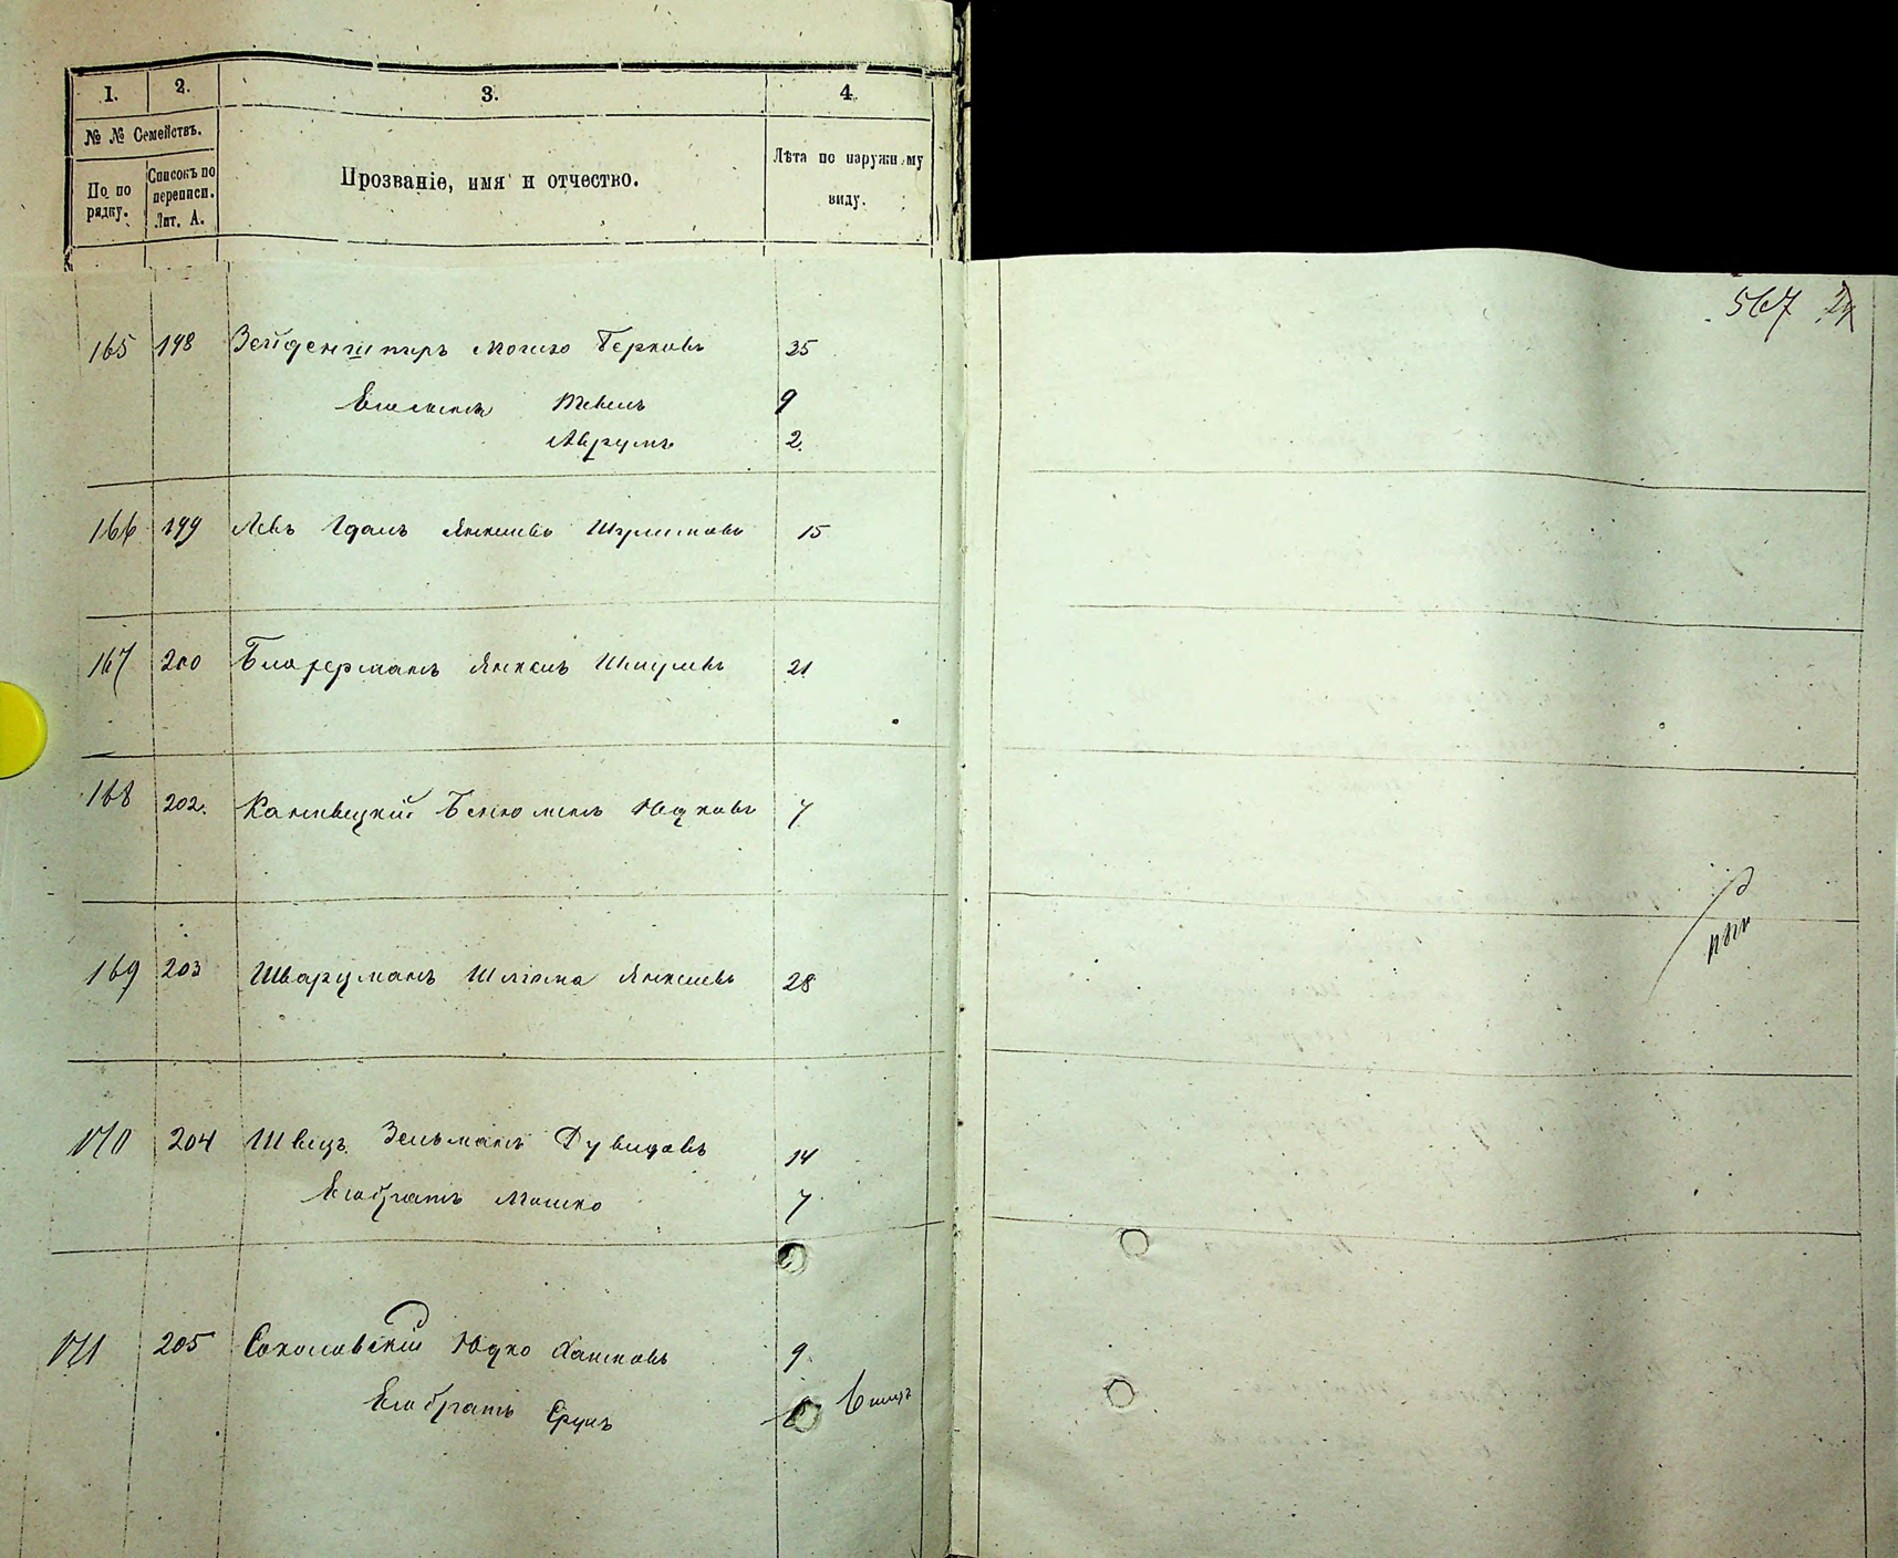 1. 2. 3. 4.
№ № Семействъ.
По по рядку.
Списокъ по переписи. Лит. А.
Прозваніе, имя и отчество.
Лѣта по наружному виду.
567 24
165 198 Зейденшниръ Мошко Берковъ 35
Его сынъ Тевель 9
Аврумъ 2.
166 199 Левъ Идель Янкелевъ Шулимовъ 15
167 200 Блаферманъ Янкель Шмулевъ 21
168 202. Каневецкій Беньоминъ Юдковъ 7
169 203 Шварцманъ Шлiома Янкелевъ 28
170 204 Швецъ Зельманъ Дувидовъ 14
Его братъ Мошко 7
171 205 Соколовскій Юдко Хаимовъ 9
Его братъ Сруль 6